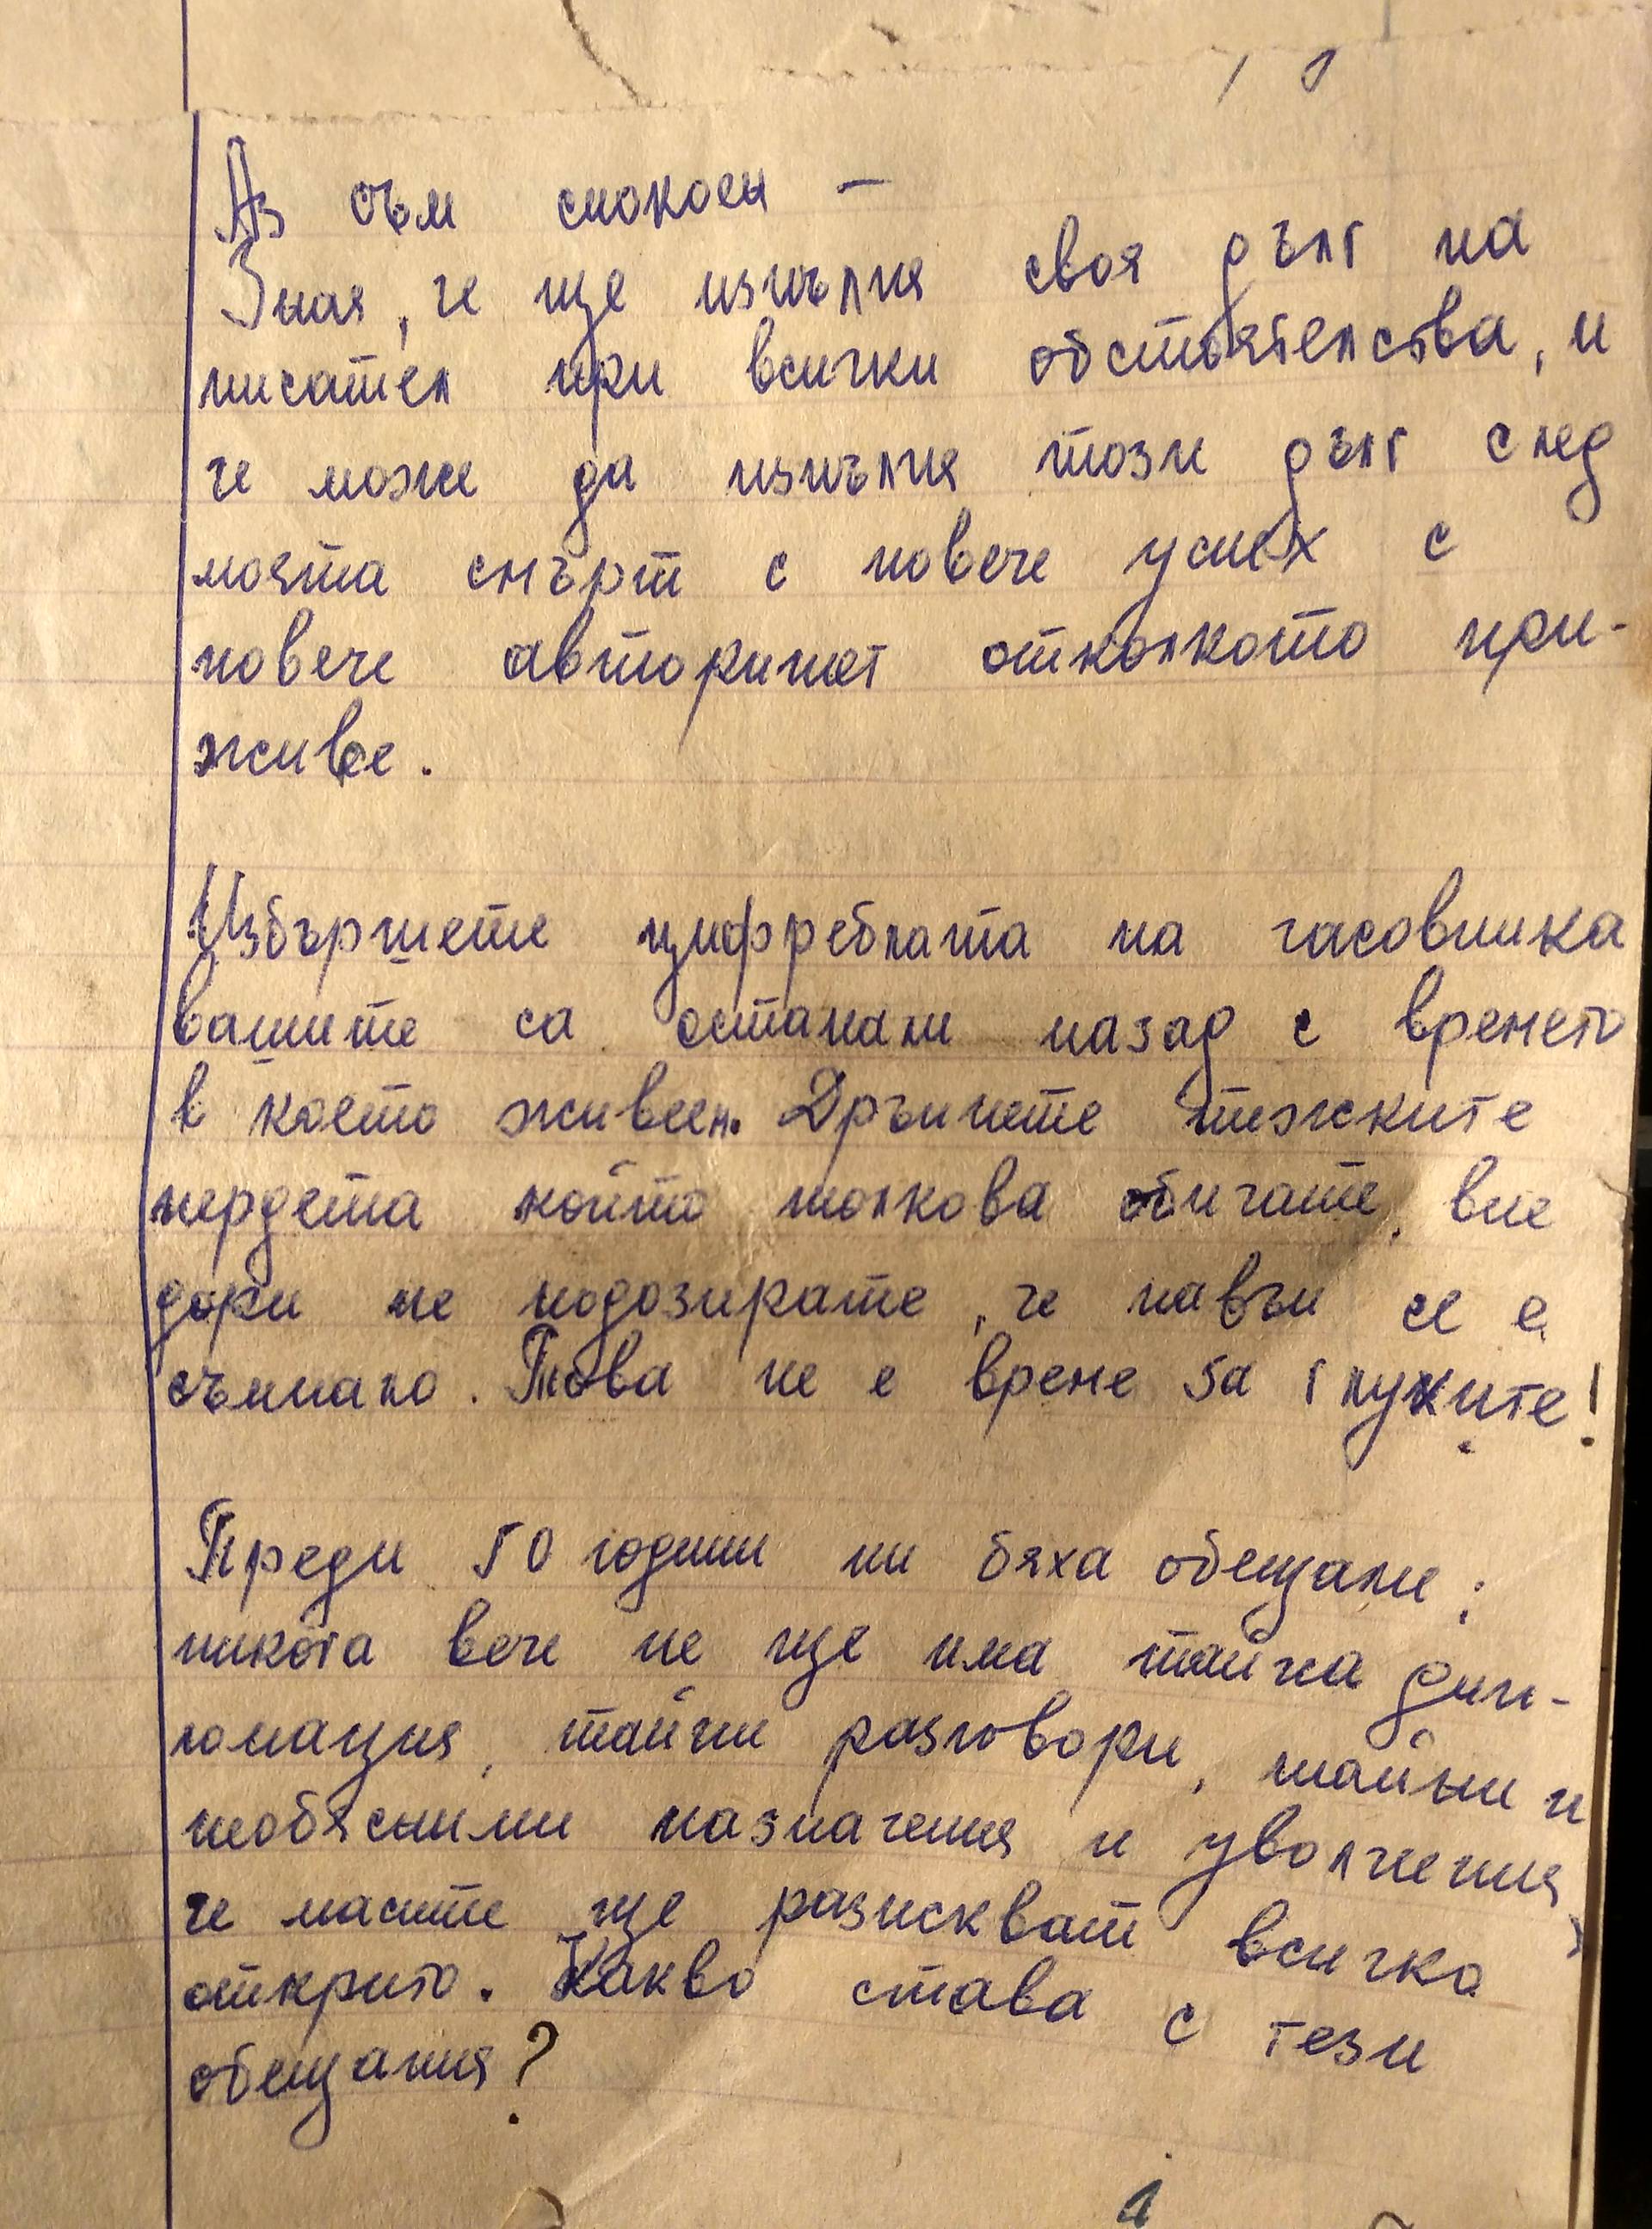 1
Аз съм спокоен —
Зная, че ще изпълня своя дълг на
писател при всички обстоятелства, и
че може да изпълня този дълг след
моята смърт с повече успех с
повече авторитет отколкото при-
живе.
Избършете цифреблата на часовника
вашите са останали назад с времето
в което живеем. Дръпнете тежките
пердета който толкова обичате, вие
дори не подозирате, че навън се е
съмнало. Това не е време за глухите!
Преди 50 години ни бяха обещали;
никога вече не ще има тайна дип-
ломация, тайни разговори, тайни и
необясними назначения и уволнения,
че масите ще разискват всичко
открито. Какво става с тези
обещания?
1